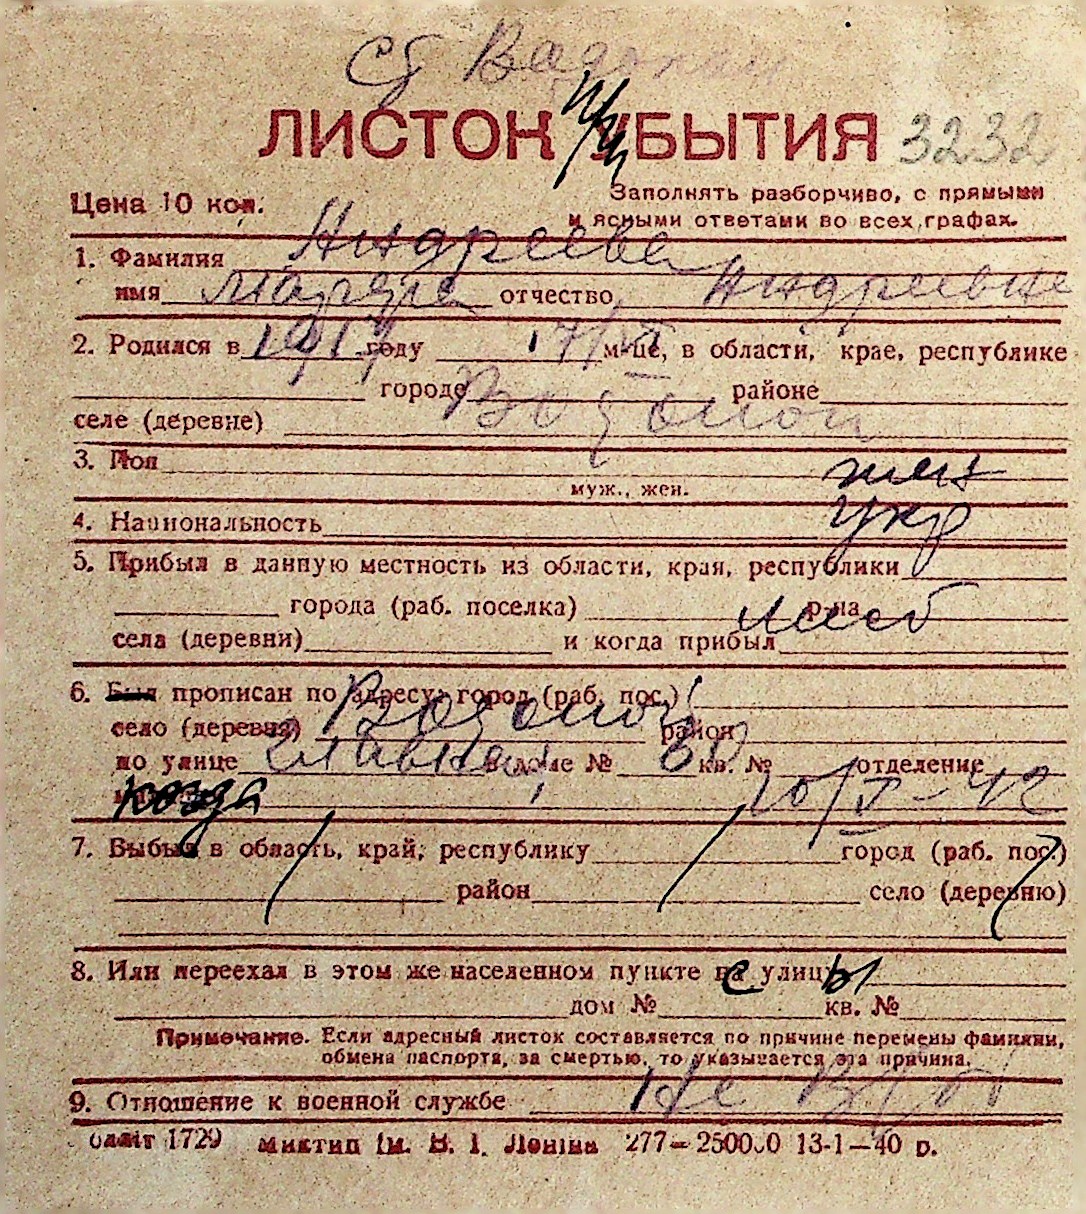 Ст Водопой
ЛИСТОК УБЫТИЯ 3232
Цена 10 коп. Заполнять разборчиво, с прямыми
и ясными ответами во всех графах.
1. Фамилия Андреева
имя отчество Андреевна
2. Родился в году м-це, в области, крае, республике
городе районе
Водопой
селе (деревне)
3. Пол жен
муж., жен.
4. Национальность укр
5. Прибыл в данную местность из области, края, республики
города (раб. поселка) р-на
села (деревни) и когда прибыл
6. Был прописан по адресу: город (раб. пос.)
село (деревня) Водопой район
по улице Главная, дом № 60 кв. № отделение
когда 20/V-42
7. Выбыл в область, край, республику город (раб. пос.)
район село (деревню)
8. Или переехал в этом же населенном пункте с улицы
дом № кв. №
Примечание. Если адресный листок составляется по причине перемены фамилии,
обмена паспорта, за смертью, то указывается эта причина.
9. Отношение к военной службе Не
1729 Миктип Ім. В. І. Леніна 277—250000 13-1—40 р.